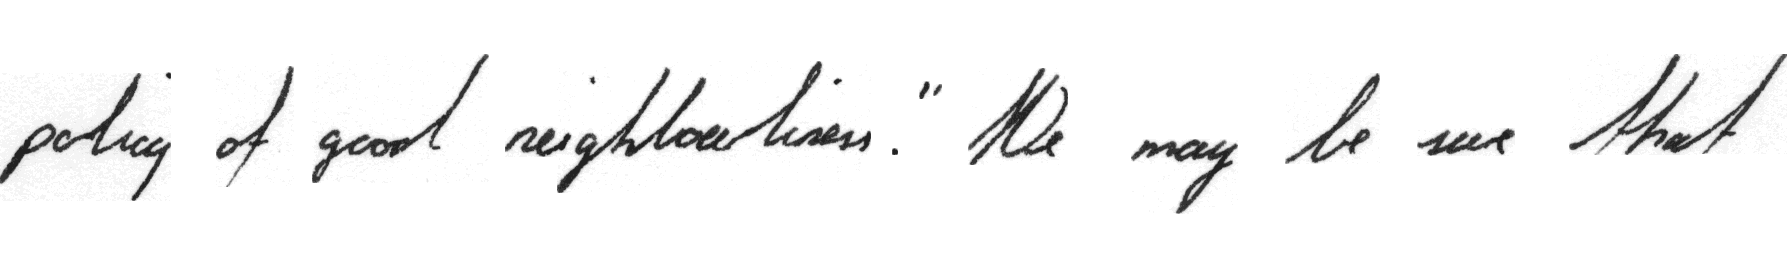 policy of good neighbourliness." We may be sure that